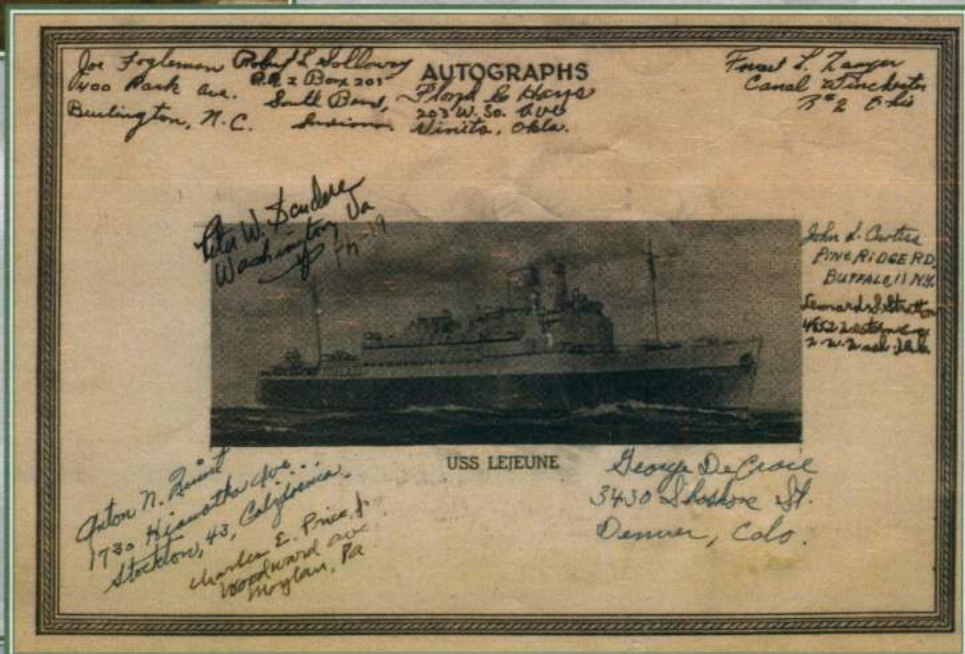 AUTOGRAPHS
Joe Fogleman
1400 Park Ave.
Burlington, N.C.
Robert L. Holloway
R.R. 2 Box 205
South Bend,
Indiana
Floyd C Hays
203 W. So. Ave
Vinita, Okla.
Forrest L. Zanger
Canal Winchester
R#2 Ohio
Peter W.
Washington Va
John L. Curtiss
PINE RIDGE RD.
BUFFALO, 11 NY.
Leonard S. Stratton
4652 Western Ave
N.W. Wash.
USS LEJEUNE
Anton N.
1730 Hiawatha Ave.
Stockton, 43, California.
Charles E. Price, Jr.
Woodward av
Moylan, Pa
George DeGrace
3430 Shoshone St.
Denver, Colo.